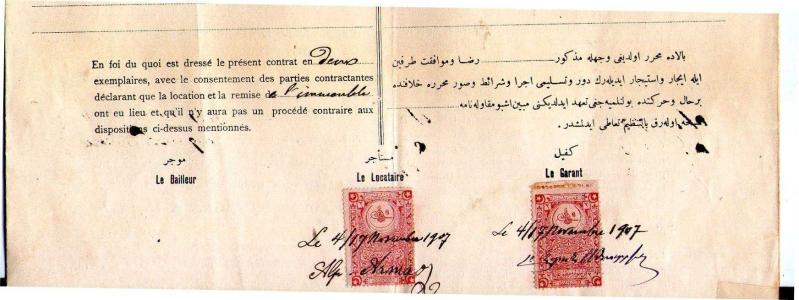 En foi du quoi est dressé le présent contrat en deux
exemplaires, avec le consentement des parties contractantes
déclarant que la location et la remise de l'immeuble
ont eu lieu et qu'il n'y aura pas un procédé contraire aux
dispositions ci-dessus mentionnés.
بالاده محرر اولدیغی وجهله مذکور رضا وموافقت طرفین
ایله ایجار واستیجار ایدیله‌رك دور وتسلیمی اجرا وشرائط وصور محرره خلافنده
برحال وحرکتده بولنلمیه‌جغی تعهد ایدلدیکنی مبین اشبو مقاوله‌نامه
نسخه اوله‌رق بالتنظیم تعاطی ایدلمشدر.
موجر
Le Bailleur
مستأجر
Le Locataire
كفیل
Le Garant
Le 4/17 Novembre 1907
Le 4/17 Novembre 1907